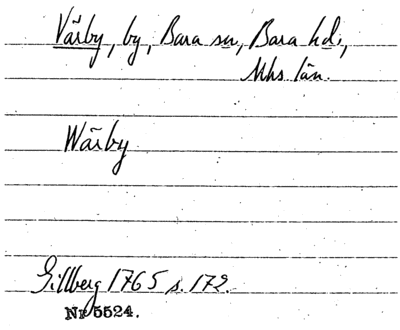 Värby, by, Bara sn, Bara hd.,
Mhs län.
Wärby
Gillberg 1765 s. 172.
Nr 5524.